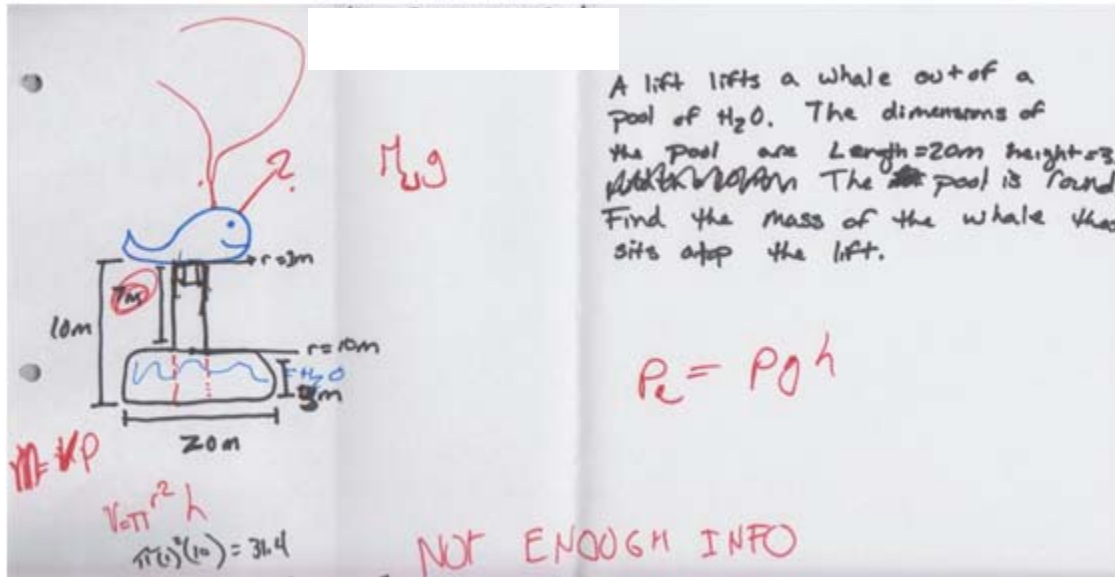 A lift lifts a whale out of a
pool of H₂O. The dimensions of
the pool are Length=20m height=3
The pool is round
Find the mass of the whale that
sits atop the lift.
?
r=3m
7m
10m
r=10m
H₂O
3m
20m
V=πr²h
π(1)²(10)=31.4
=ρgh
NOT ENOUGH INFO